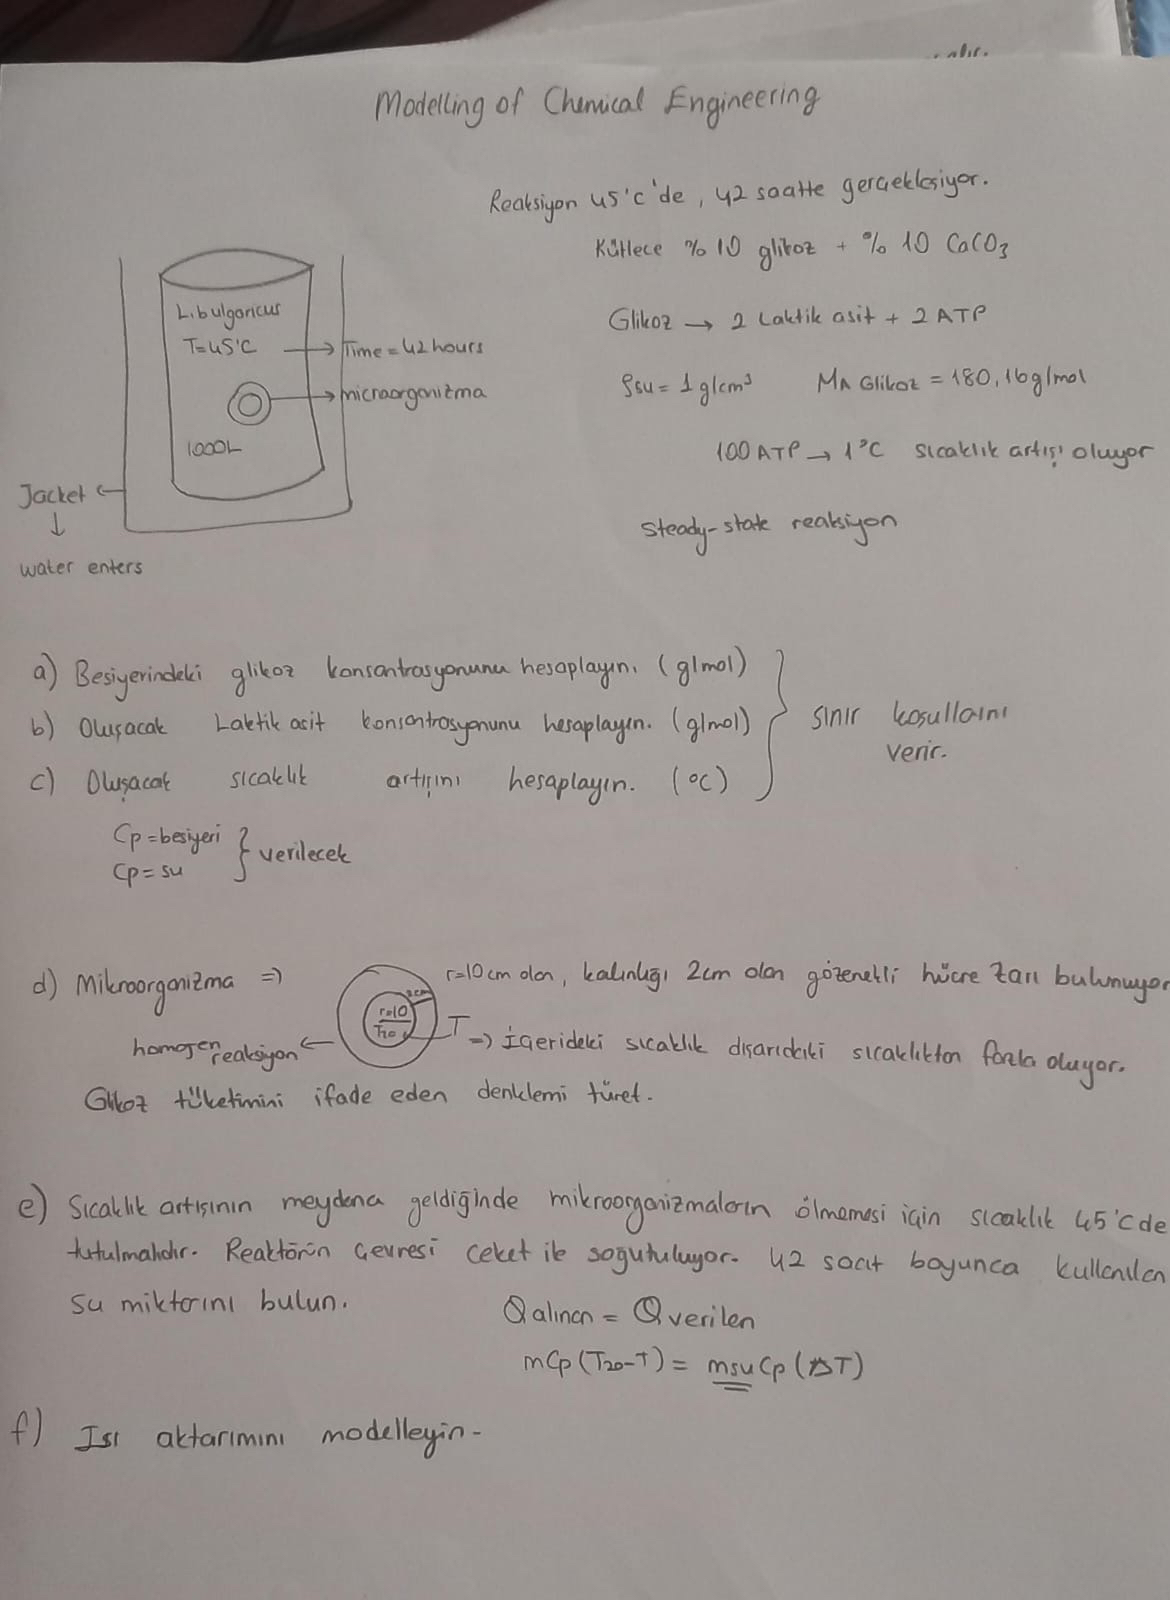 alır.
Modelling of Chemical Engineering
Reaksiyon 45°C'de, 42 saatte gerçekleşiyor.
Kütlece % 10 glikoz + % 10 CaCO3
Glikoz → 2 Laktik asit + 2 ATP
ρsu = 1 g/cm³ MA Glikoz = 180,16 g/mol
100 ATP → 1°C sıcaklık artışı oluyor
Steady-state reaksiyon
L.bulgaricus
T=45°C → Time = 42 hours
→ microorganizma
1000L
Jacket ←
↓
water enters
a) Besiyerindeki glikoz konsantrasyonunu hesaplayın. (g/mol)
b) Oluşacak Laktik asit konsantrasyonunu hesaplayın. (g/mol)
c) Oluşacak sıcaklık artışını hesaplayın. (°C)
sınır koşullarını
verir.
Cp = besiyeri
Cp = su
verilecek
d) Mikroorganizma => r=10cm olan, kalınlığı 2cm olan gözenekli hücre zarı bulunuyor
2cm
r=10
T20
T => İçerideki sıcaklık dışarıdaki sıcaklıktan fazla oluyor.
homojen reaksiyon ←
Glikoz tüketimini ifade eden denklemi türet.
e) Sıcaklık artışının meydana geldiğinde mikroorganizmaların ölmemesi için sıcaklık 45°C de
tutulmalıdır. Reaktörün çevresi ceket ile soğutuluyor. 42 saat boyunca kullanılan
su miktarını bulun.
Qalınan = Qverilen
mCp (T20-T) = msuCp (ΔT)
f) Isı aktarımını modelleyin.